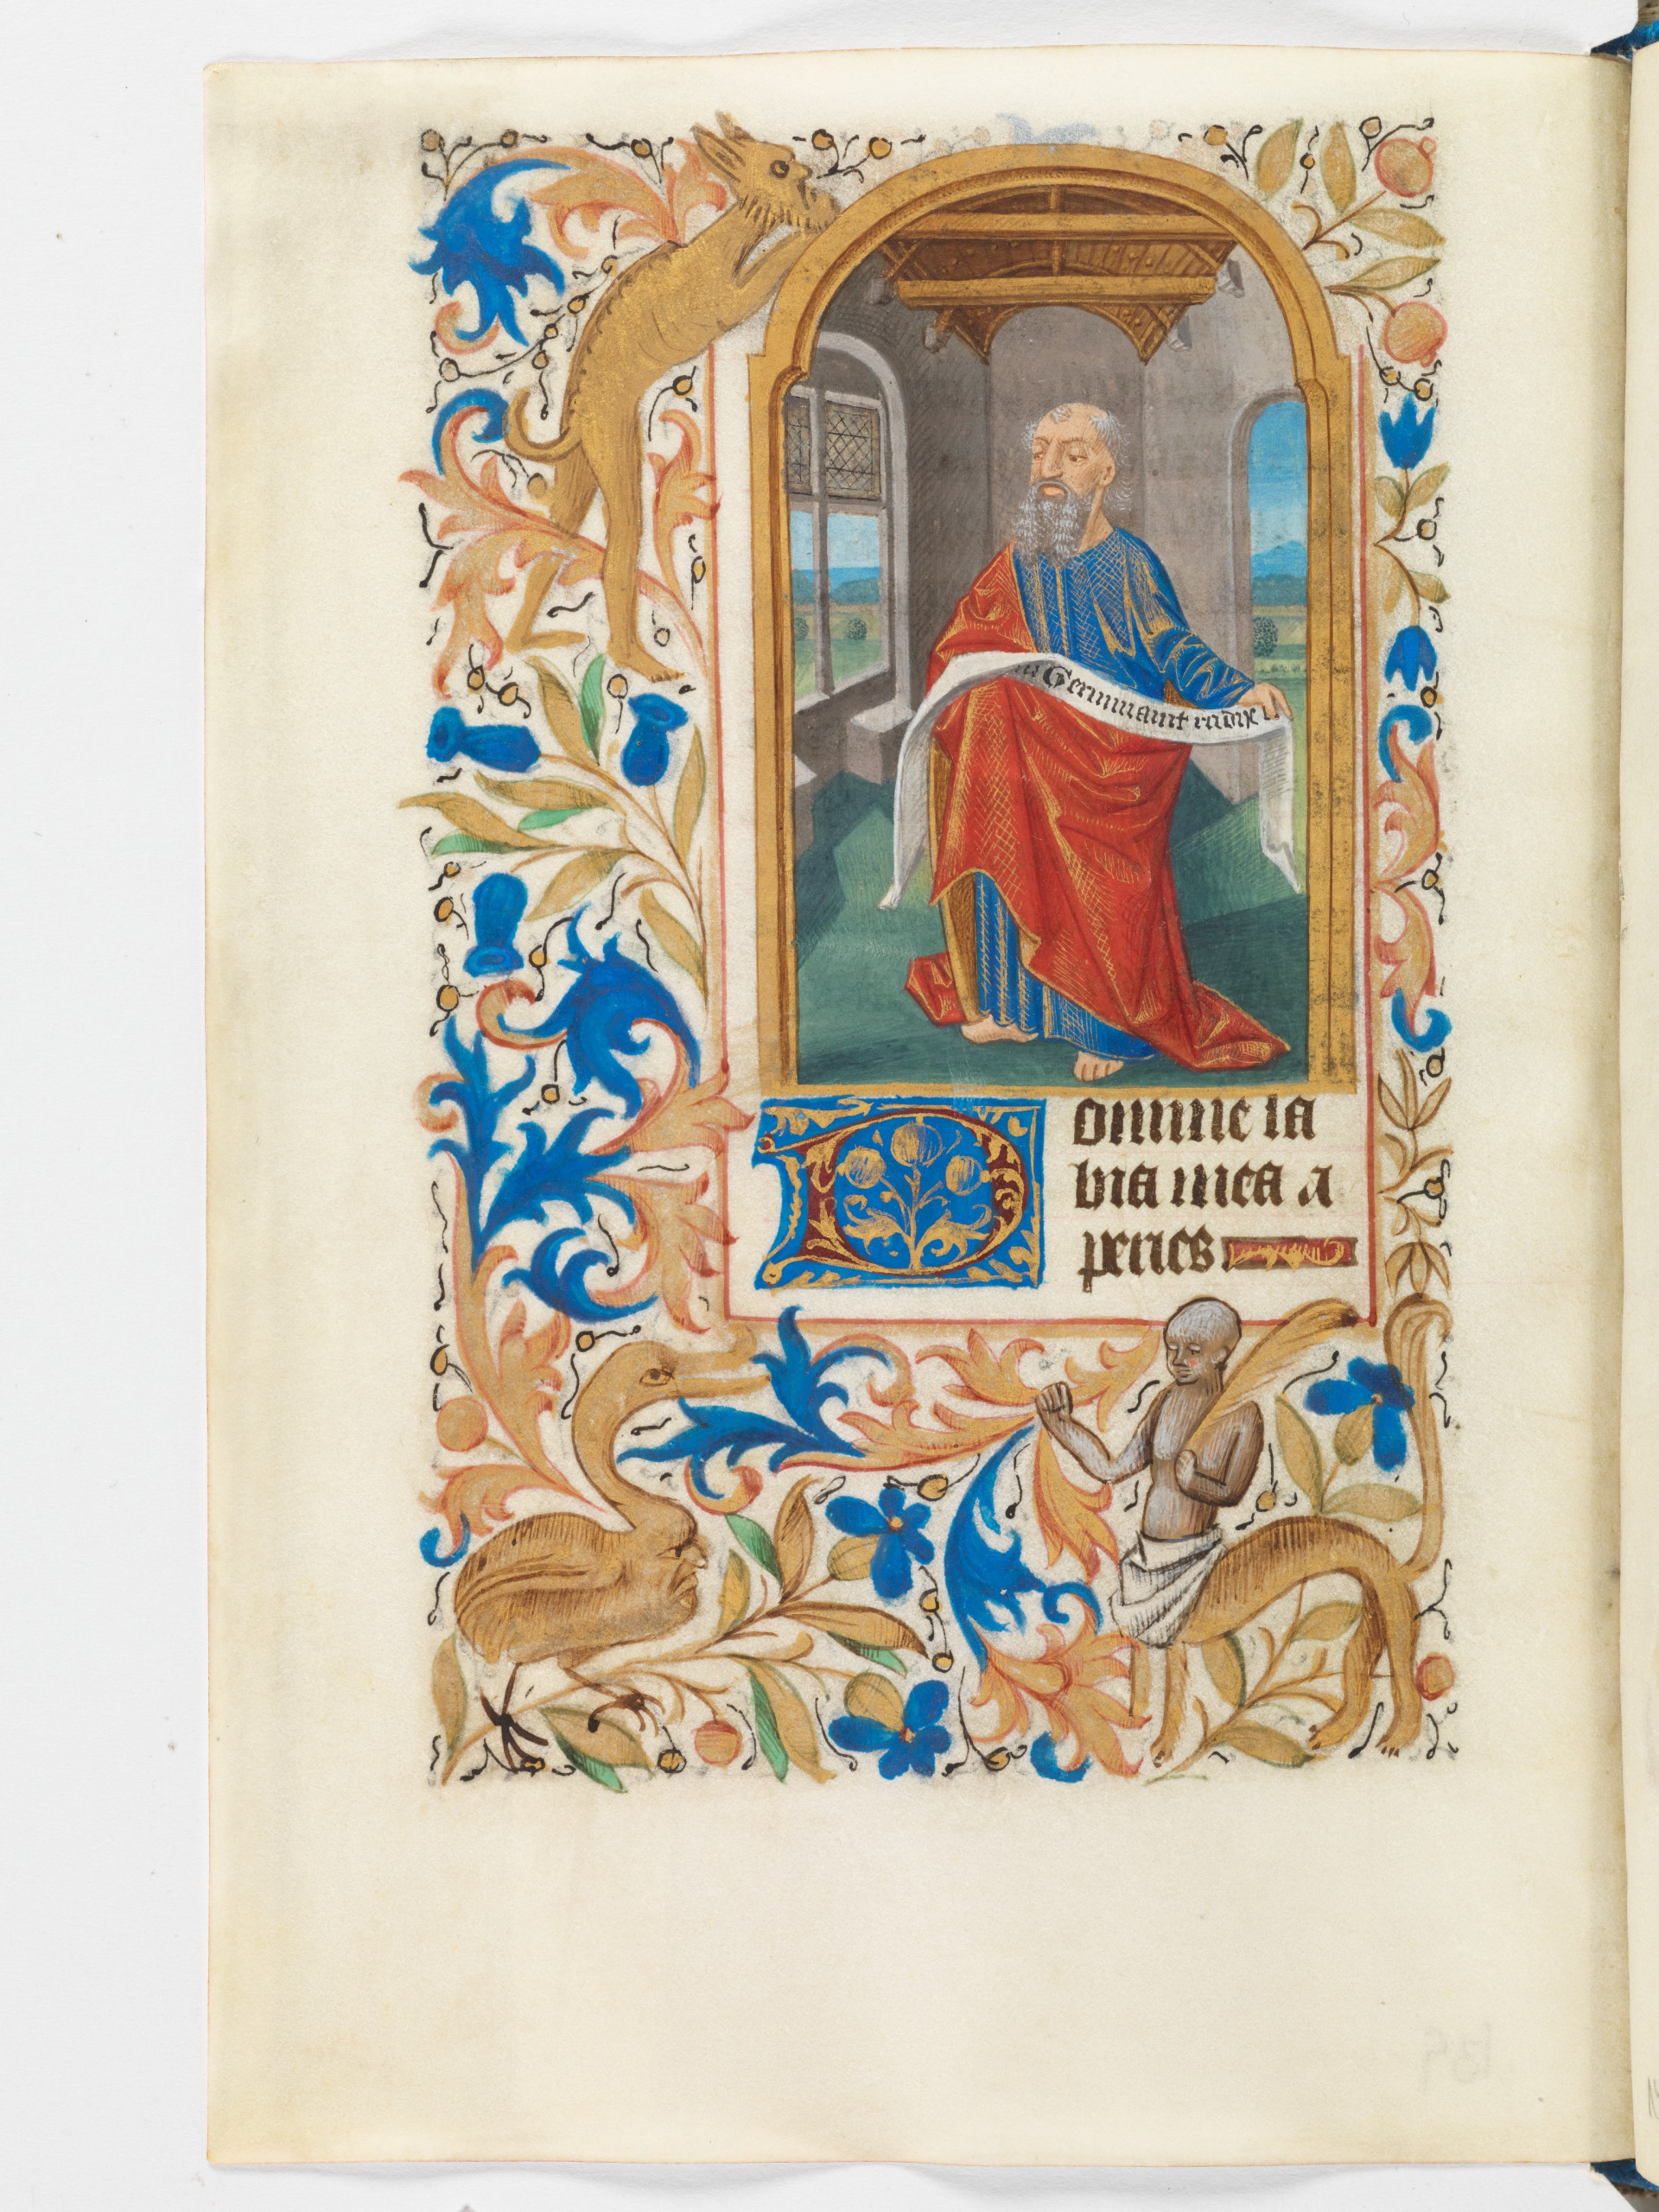 Germinauit radix
Domine la
bia mea a
peries